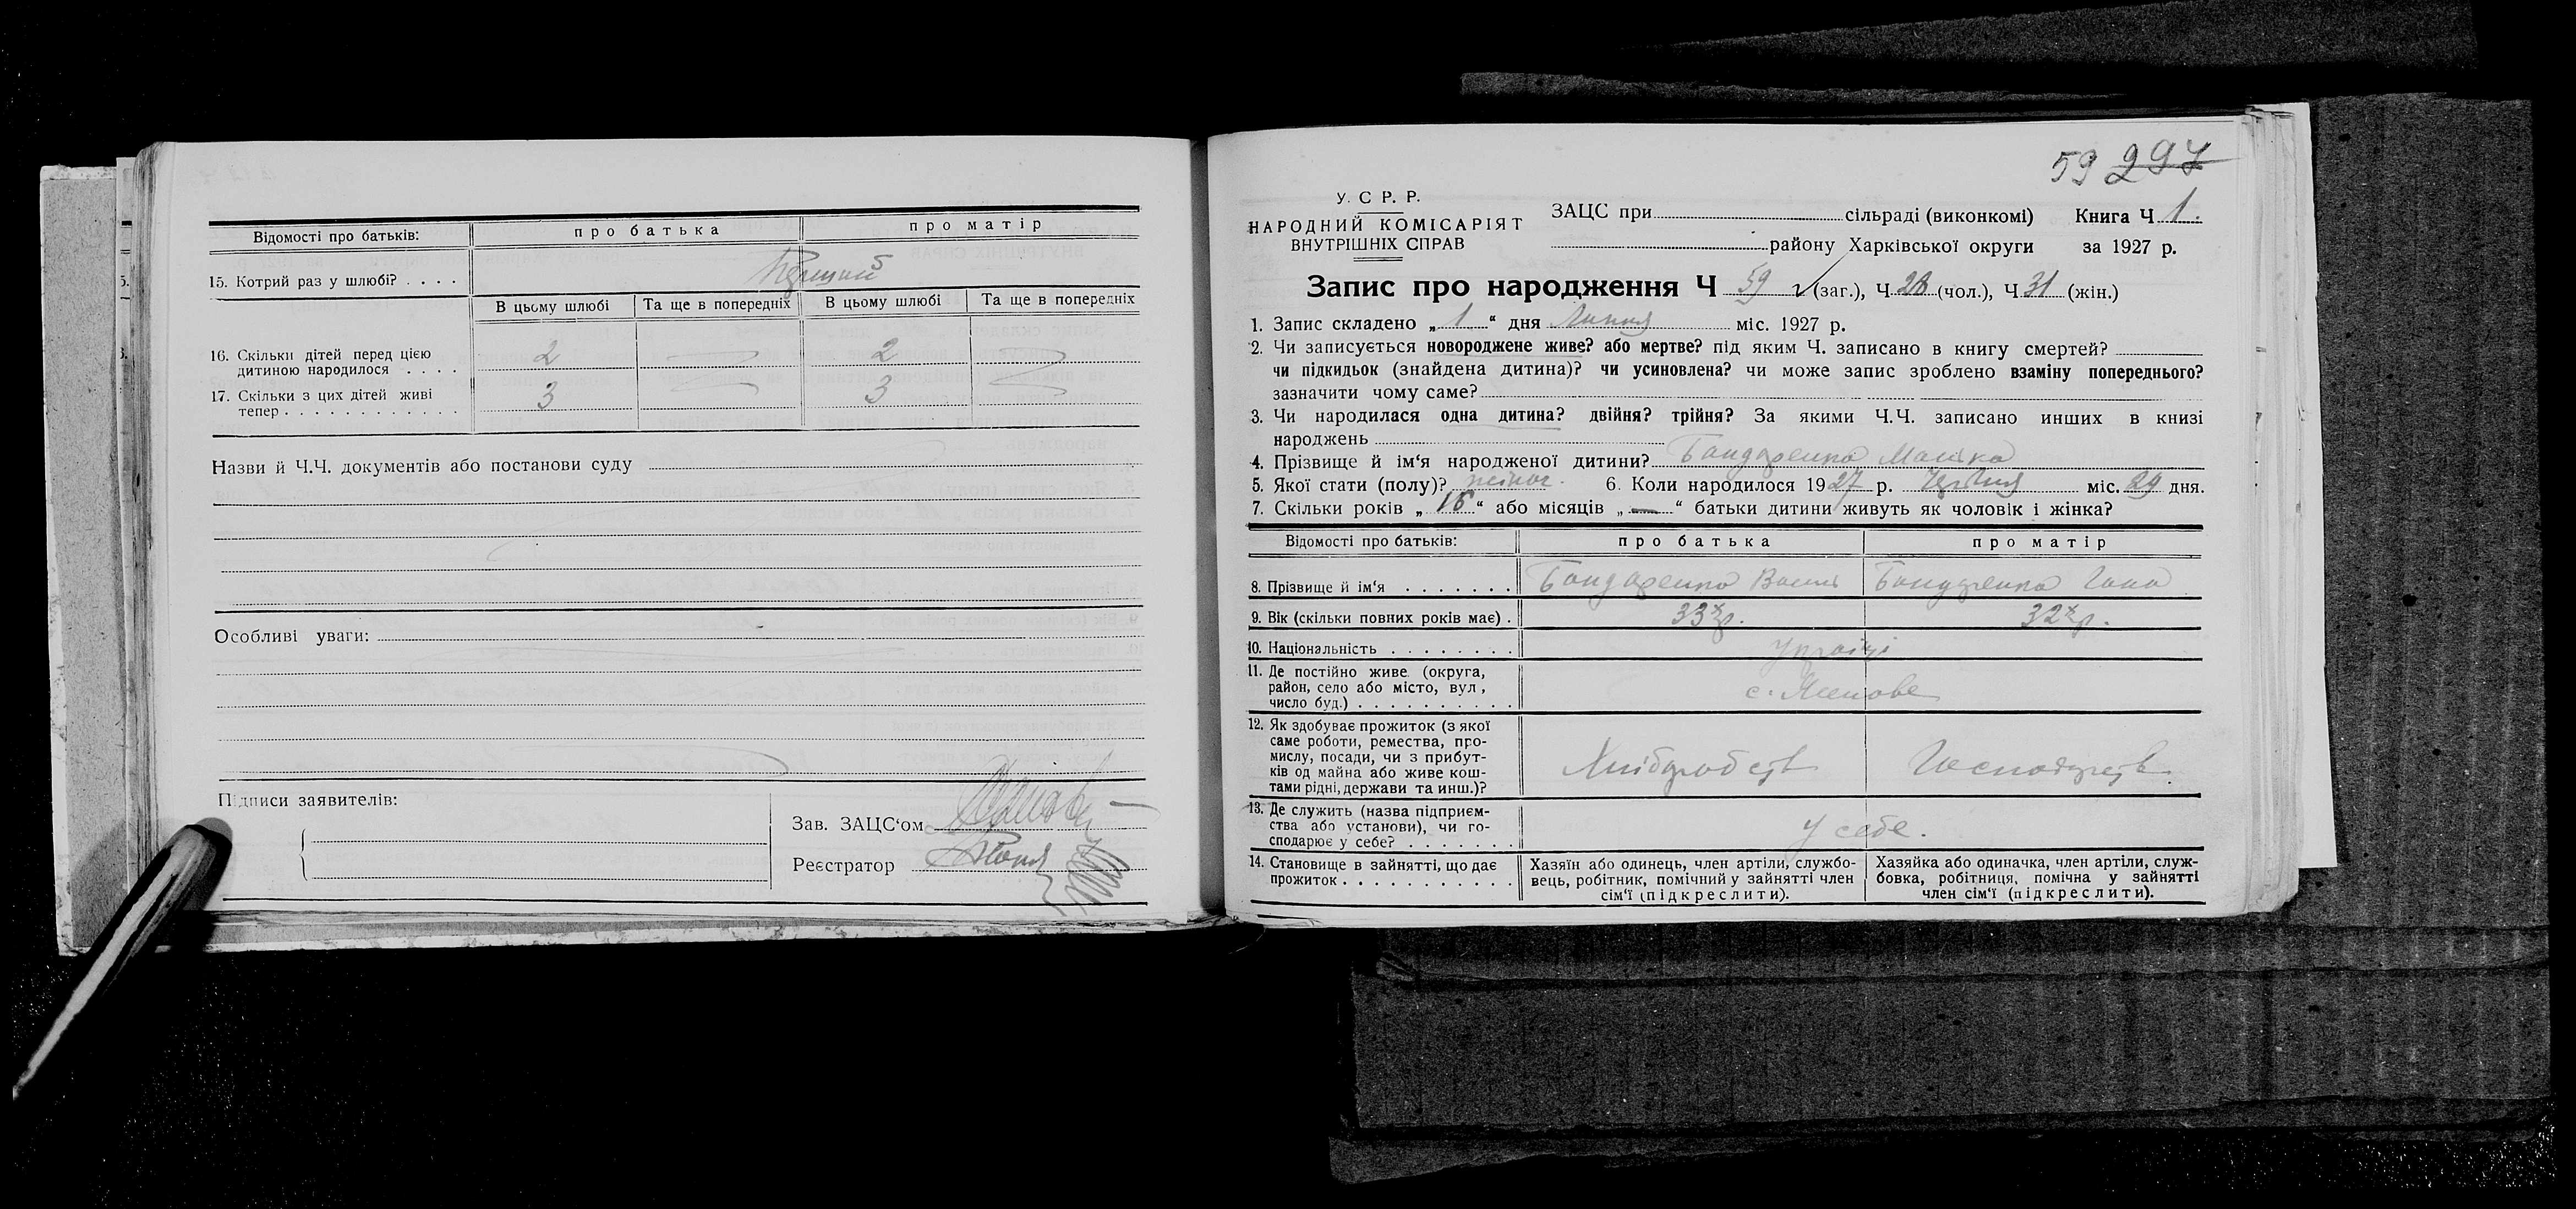 Відомості про батьків: про батька про матір
15. Котрий раз у шлюбі? . . . . Перший
В цьому шлюбі Та ще в попередніх В цьому шлюбі Та ще в попередніх
16. Скільки дітей перед цією
дитиною народилося . . . . 2 2
17. Скільки з цих дітей живі
тепер . . . . . . . . . . . . . 3 3
Назви й Ч.Ч. документів або постанови суду
Особливі уваги:
Підписи заявителів:
Зав. ЗАЦС'ом
Реєстратор
59 297
У. С. Р. Р.
НАРОДНИЙ КОМІСАРІЯТ
ВНУТРІШНІХ СПРАВ
ЗАЦС при сільраді (виконкомі) Книга Ч 1.
району Харківської округи за 1927 р.
Запис про народження Ч 59 (заг.), Ч 28 (чол.), Ч 31 (жін.)
1. Запис складено „ 1 “ дня Липня міс. 1927 р.
2. Чи записується новороджене живе? або мертве? під яким Ч. записано в книгу смертей?
чи підкидьок (знайдена дитина)? чи усиновлена? чи може запис зроблено взаміну попереднього?
зазначити чому саме?
3. Чи народилася одна дитина? двійня? трійня? За якими Ч.Ч. записано инших в книзі
народжень
4. Прізвище й ім'я народженої дитини? Бондаренко
5. Якої стати (полу)? жіноч. 6. Коли народилося 1927 р. Червня міс. 29 дня.
7. Скільки років „ 16 “ або місяців „ — “ батьки дитини живуть як чоловік і жінка?
Відомості про батьків: про батька про матір
8. Прізвище й ім'я . . . . . . . Бондаренко Василь Бондаренко Гана
9. Вік (скільки повних років має) . 33 р. 32 р.
10. Національність . . . . . . . . Українці
11. Де постійно живе (округа,
район, село або місто, вул,
число буд.) . . . . . . . . . . с.
12. Як здобуває прожиток (з якої
саме роботи, ремества, про-
мислу, посади, чи з прибут-
ків од майна або живе кош-
тами рідні, держави та инш.)? Хліборобств Господарств
13. Де служить (назва підприєм-
ства або установи), чи го-
сподарює у себе? . . . . . . . У себе.
14. Становище в зайнятті, що дає
прожиток . . . . . . . . . . . .
Хазяїн або одинець, член артіли, службо-
вець, робітник, помічний у зайнятті член
сім'ї (підкреслити).
Хазяйка або одиначка, член артіли, служ-
бовка, робітниця, помічна у зайнятті
член сім'ї (підкреслити).